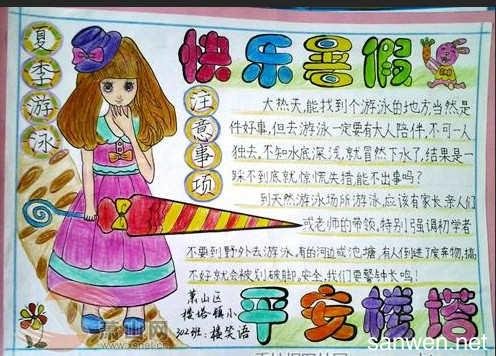 快乐暑假
夏季游泳
注意事项
大热天,能找到个游泳的地方,当然是
件好事,但去游泳一定要有大人陪伴,不可一人
独去。不知水底深浅,就冒然下水了,结果是一
踩不到底就惊慌失措,能不出事吗?
到天然游泳场所游泳,应该有家长亲人们
或老师的带领,特别强调初学者
不要到野外去游泳。有的河边或池塘,有人倒进了废弃物,搞
不好就会被划破脚。安全,我们要警钟长鸣!
萧山区
楼塔镇小
302班:楼笑语
平安楼塔
sanwen.net